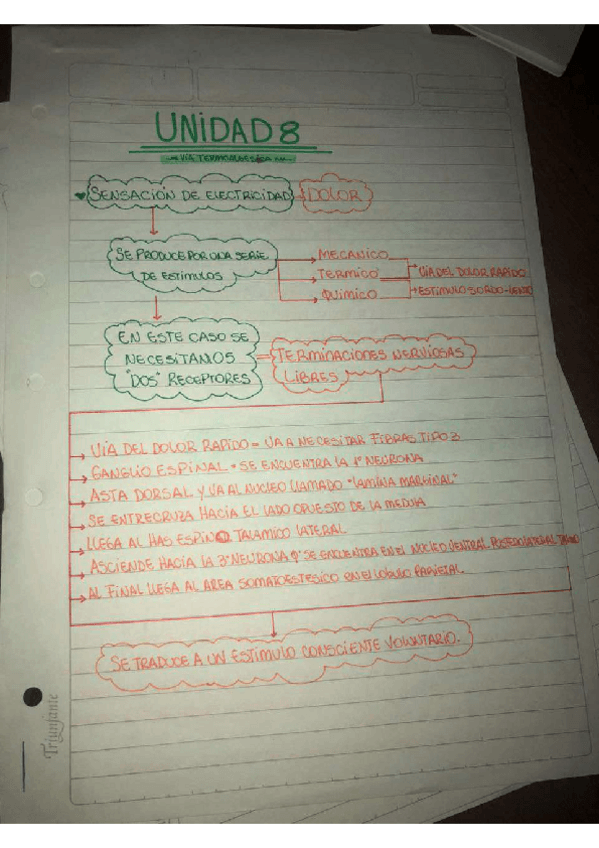 UNIDAD 8
VÍA TERMOALGESICA
SENSACIÓN DE ELECTRICIDAD
DOLOR
SE PRODUCE POR UNA SERIE
DE ESTIMULOS
MECANICO
TERMICO
QUIMICO
VIA DEL DOLOR RAPIDO
ESTIMULO SORDO-LENTO
EN ESTE CASO SE
NECESITAMOS
"DOS" RECEPTORES
TERMINACIONES NERVIOSAS
LIBRES
VÍA DEL DOLOR RAPIDO = VA A NECESITAR FIBRAS TIPO 3
GANGLIO ESPINAL • SE ENCUENTRA LA 1º NEURONA
ASTA DORSAL Y VA AL NUCLEO LLAMADO "LAMINA MARGINAL"
SE ENTRECRUZA HACIA EL LADO OPUESTO DE LA MEDULA
LLEGA AL HAS ESPINO TALAMICO LATERAL
ASCIENDE HACIA LA 3º NEURONA Q' SE ENCUENTRA EN EL NUCLEO VENTRAL POSTEROLATERAL
AL FINAL LLEGA AL AREA SOMATOESTESICO EN EL LOBULO PARIETAL.
SE TRADUCE A UN ESTIMULO CONSCIENTE VOLUNTARIO.
Triunfante